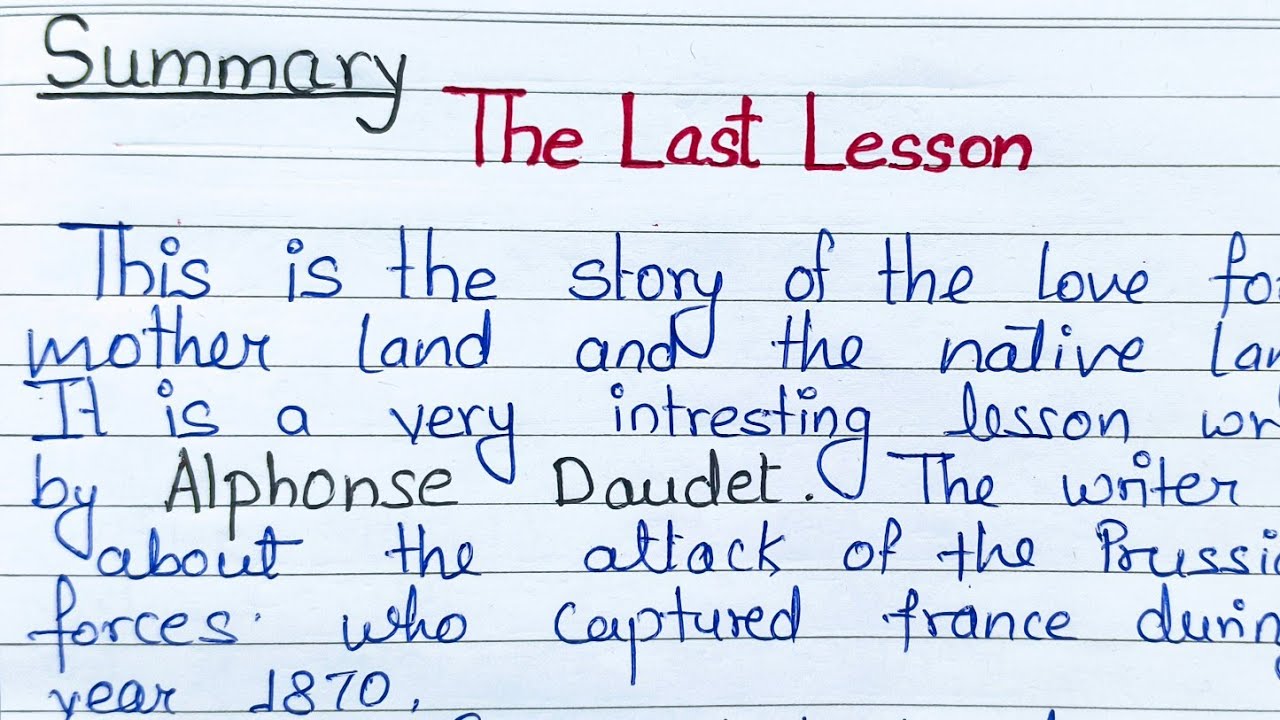 Summary
The Last Lesson
This is the story of the love for
mother land and the native
It is a very intresting lesson
by Alphonse Daudet. The writer
about the attack of the
forces. who captured france
year 1870.